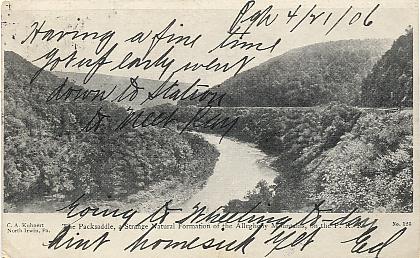 Pgh 4/21/06
Having a fine time
Got up early went
down to Station
to meet Ray
Going to Wheeling to-day
Aint homesick yet Ed
C. A. Kuhnert
North Irwin, Pa.
The Packsaddle, a Strange Natural Formation of the Allegheny Mountains, on the P. R. R.